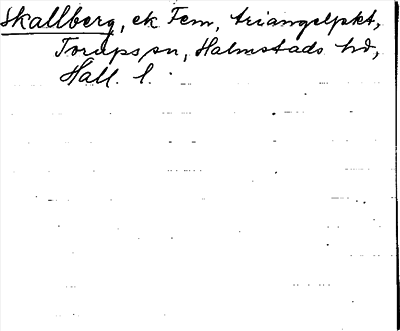 Skallberg, ek Fem, triangelpkt,
Torups sn, Halmstads hd,
Hall. l.